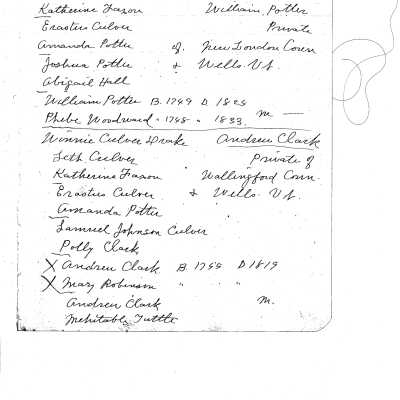 Katherine Faxon William Potter
Erastus Culver Private
Amanda Potter of New London Conn
Joshua Potter & Wells. Vt.
Abigail Hall
William Potter B. 1749 D 1825
Phebe Woodward " 1748 " 1833. m —
Winnie Culver Drake Andrew Clark
Seth Culver Private of
Katherine Faxon Wallingford Conn.
Erastus Culver & Wells. Vt.
Amanda Potter
Samuel Johnson Culver
Polly Clark
X Andrew Clark B. 1755 D 1819
X Mary Robinson " "
Andrew Clark m.
Mehitable Tuttle